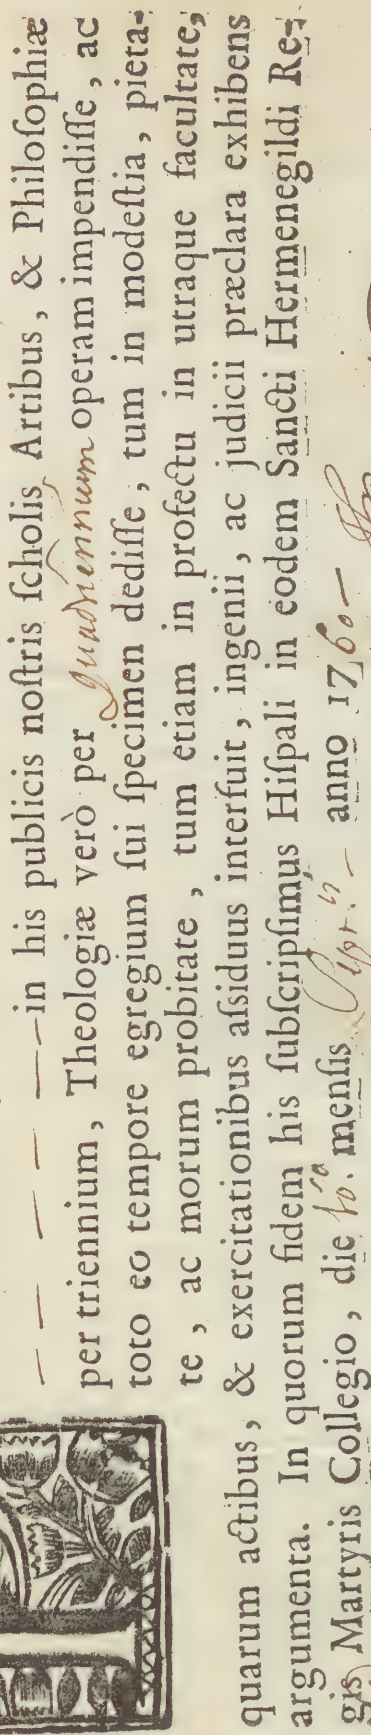 — — — — — in his publicis noſtris ſcholis Artibus, & Philoſophiæ
per triennium, Theologiæ verò per quadriennium operam impendiſſe, ac
toto eo tempore egregium ſui ſpecimen dediſſe, tum in modeſtia, pieta-
te, ac morum probitate, tum etiam in profectu in utraque facultate,
quarum actibus, & exercitationibus aſsiduus interfuit, ingenii, ac judicii præclara exhibens
argumenta. In quorum fidem his ſubſcripſimus Hiſpali in eodem Sancti Hermenegildi Re-
gis Martyris Collegio, die menſis anno 1760 —